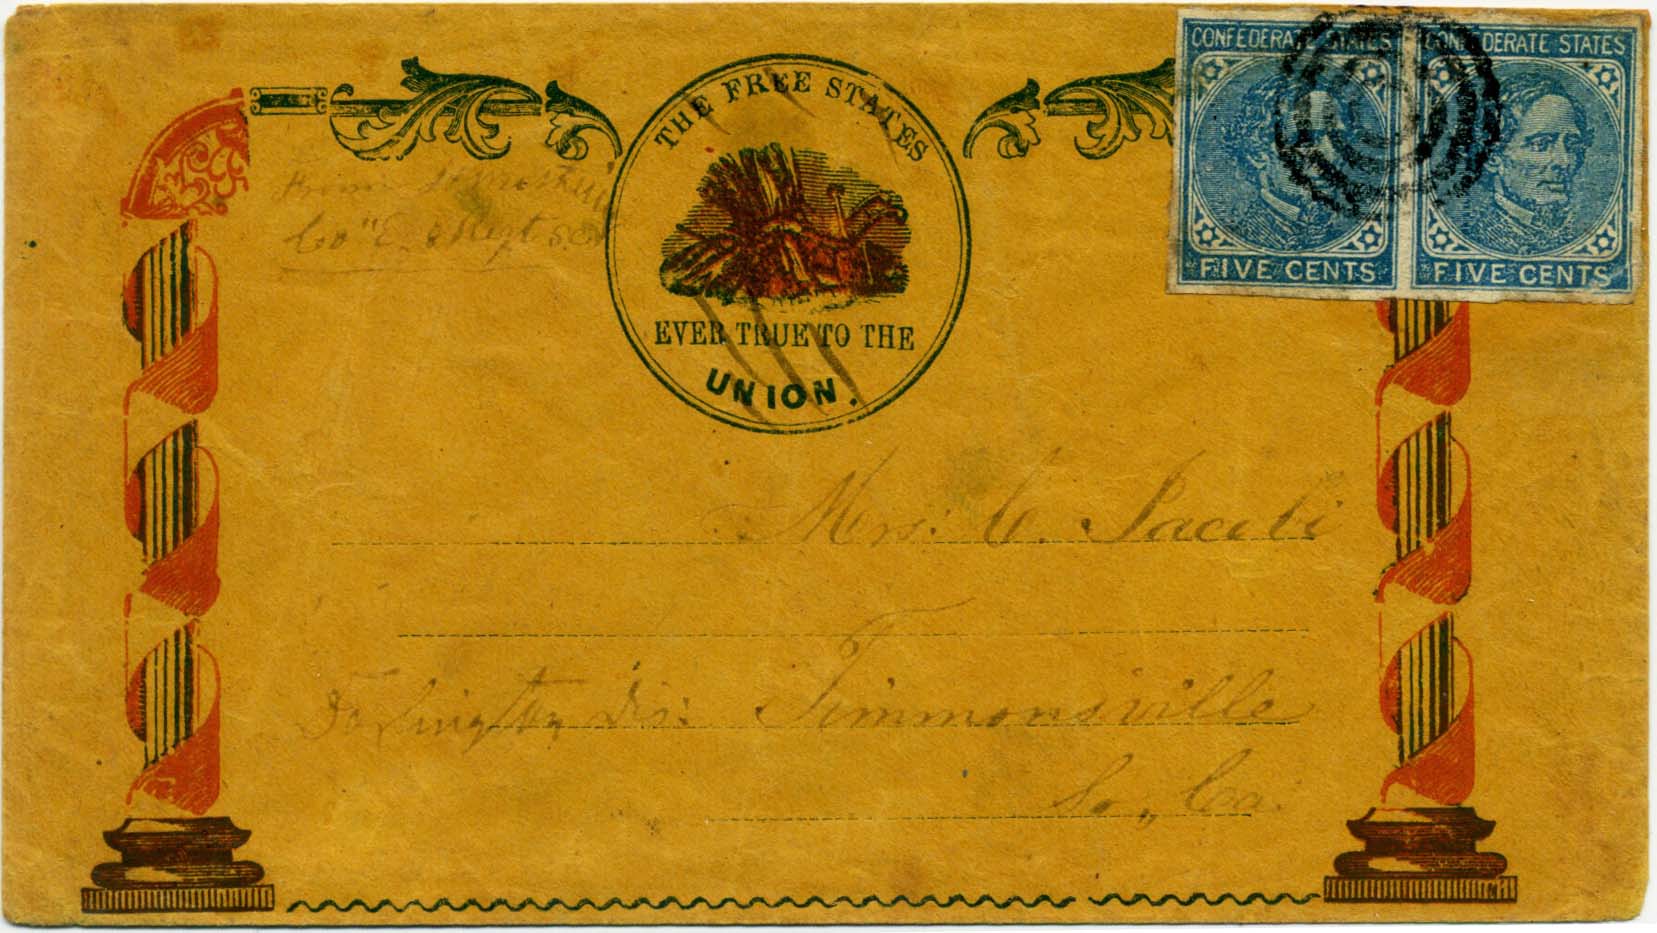 CONFEDERATE STATES
FIVE CENTS
CONFEDERATE STATES
FIVE CENTS
THE FREE STATES
EVER TRUE TO THE
UNION.
From
Co "E. 8 Regt S.C.V
Mrs. C. Jacobi
Timmonsville
Darlington Dis:
So,, Ca.